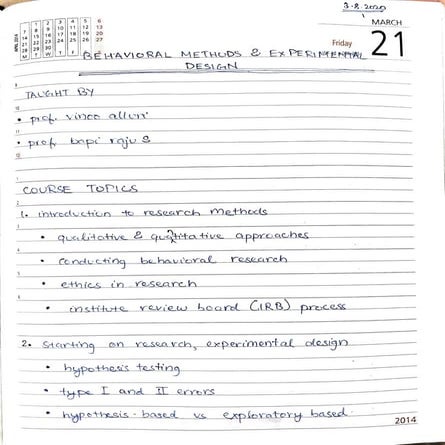 3-8-2020
MARCH
Friday 21
APRIL 2014
BEHAVIORAL METHODS & EXPERIMENTAL
DESIGN
TAUGHT BY
• prof. vinoo alluri
• prof. bapi raju S
COURSE TOPICS
1. introduction to research methods
• qualitative & quantitative approaches
• conducting behavioral research
• ethics in research
• institute review board (IRB) process
2. starting on research, experimental design
• hypothesis testing
• type I and II errors
• hypothesis-based vs exploratory based.
2014